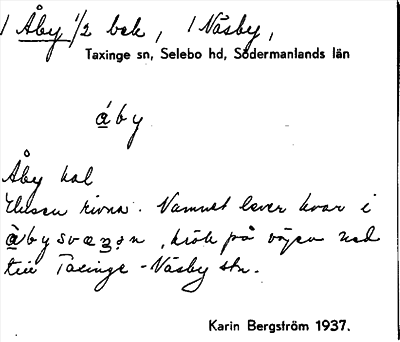 1 Åby 1/2 bek, 1 Näsby,
Taxinge sn, Selebo hd, Södermanlands län
áby
Åby hal
Husen rivna. Namnet lever kvar i
àbysvæŋən, krök på vägen ned
till Taxinge-Näsby stn.
Karin Bergström 1937.